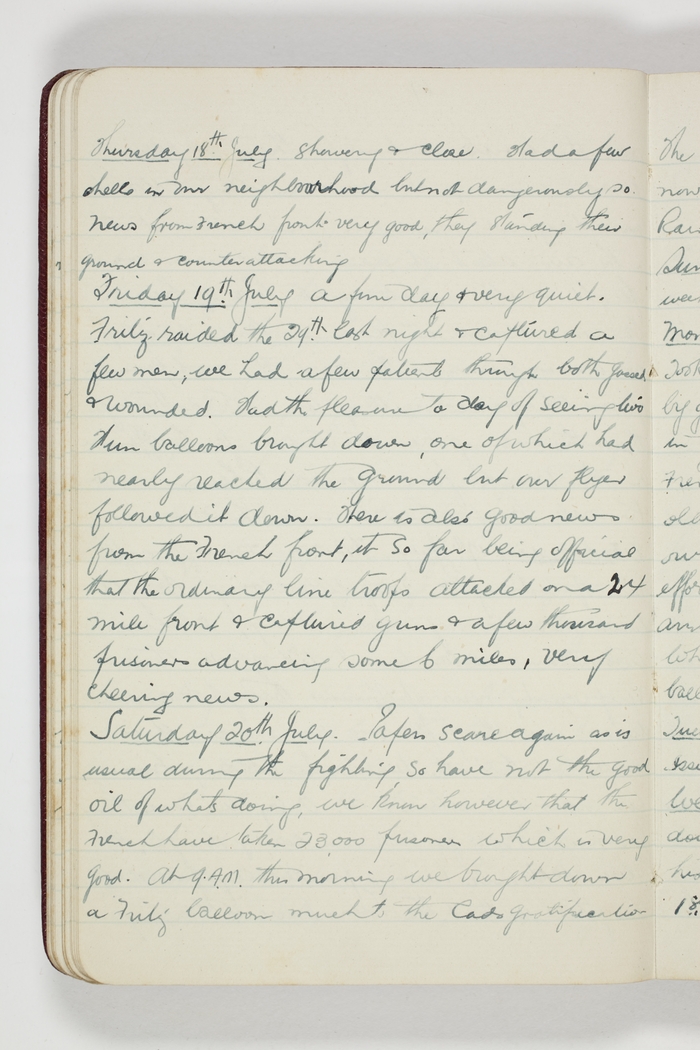 Thursday 18th July. Showery & close. Had a few
shells in our neighbourhood but not dangerously so.
News from French front very good, they standing their
ground & counter attacking
Friday 19th July a fine day & very quiet.
Fritz raided the 29th last night & captured a
few men, we had a few patients through both gassed
& wounded. Had the pleasure to day of seeing two
Hun balloons brought down, one of which had
nearly reached the ground but our flyer
followed it down. There is also good news
from the French front, it so far being official
that the ordinary line troops attacked on a 24
mile front & captured guns & a few thousand
prisoners advancing some 6 miles, very
cheering news.
Saturday 20th July. Papers scarce again as is
usual during the fighting, so have not the good
oil of whats doing, we know however that the
French have taken 23,000 prisoners which is very
good. At 9.A.M. this morning we brought down
a Fritz balloon much to the lads gratification
The
now
Rain
Sun
wea
Mon
Took
big g
in
Fren
old
our
effor
ann
Wh
ball
Tue
Issu
We
dow
his
18